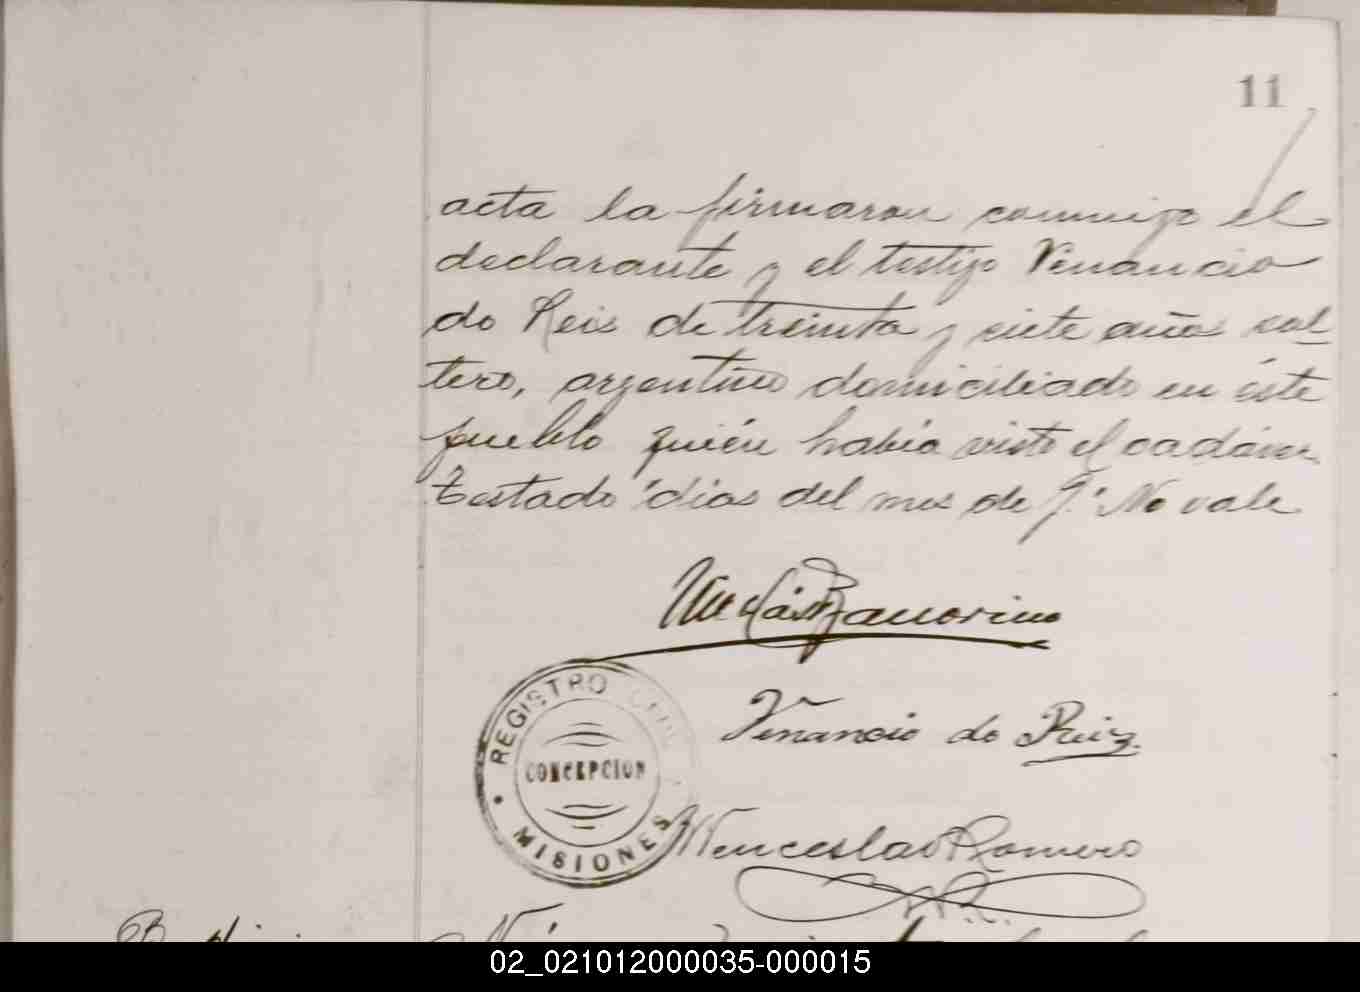 11
acta la firmaron conmigo el
declarante y el testigo Venancio
do Reis de treinta y siete años sol
tero, argentino domiciliado en éste
pueblo quién había visto el cadáver
Testado "dias del mes de J." No vale
Venancio do Reiz
REGISTRO CIVIL
CONCEPCION
MISIONES
Wenceslao Romero
02_021012000035-000015